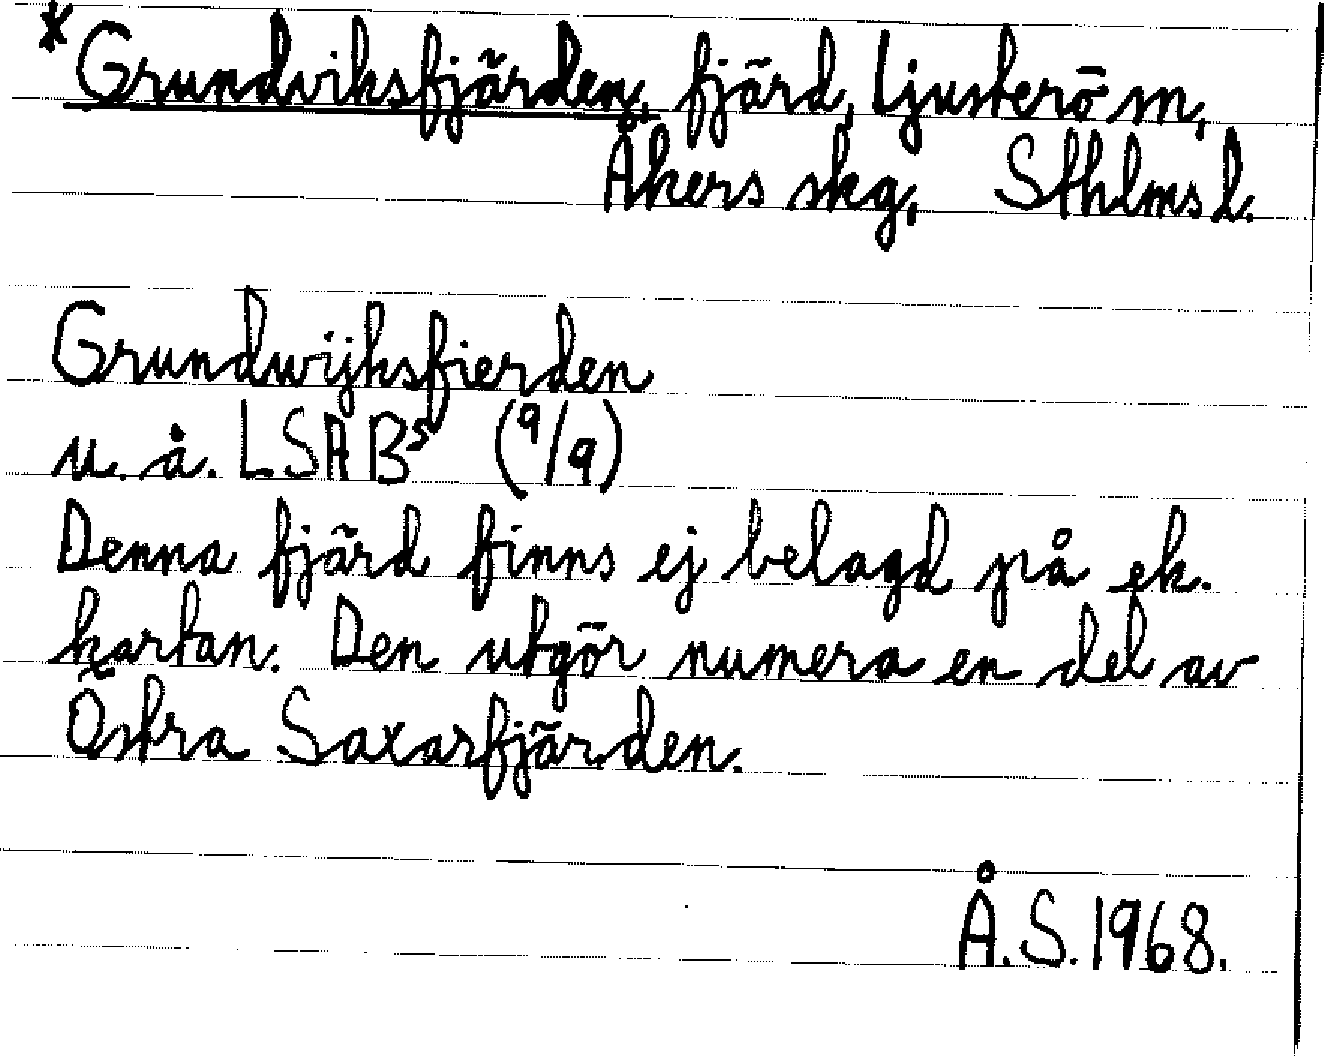 *Grundviksfjärden, fjärd, Ljusterö sn,
Åkers skg, Sthlms l.
Grundwijksfierden
u. å. LSA B⁵ (9/9)
Denna fjärd finns ej belagd på ek.
kartan. Den utgör numera en del av
Östra Saxarfjärden.
Å.S. 1968.